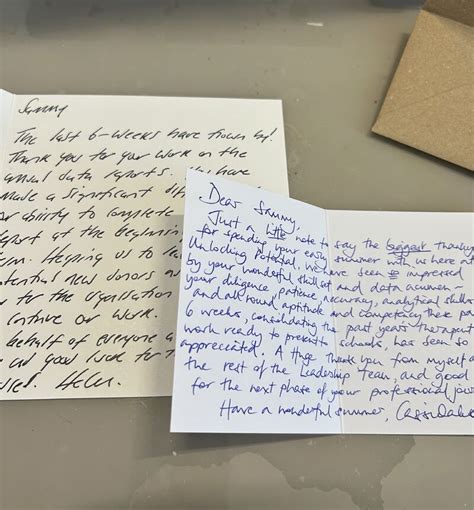 Sammy
The last 6-weeks have flown by!
Thank you for your work on the
annual data reports. You have
made a significant
our ability to complete
report at the beginning
Helping us to
potential new donors
for the organisation
continue our work.
behalf of everyone a
and good luck for
Helen.
Dear Sammy,
Just a little note to say the biggest thankyou
for spending your easy summer with us here at
Unlocking Potential. We have been so impressed
by your wonderful skillset and data acumen -
your diligence, patience, accuracy, analytical skills
and all round aptitude and competency these past
6 weeks, consolidating the past years therapeutic
work ready to present to schools, has been so
appreciated. A Huge Thank you from myself and
the rest of the Leadership Team, and good
for the next phase of your professional
Have a wonderful summer,